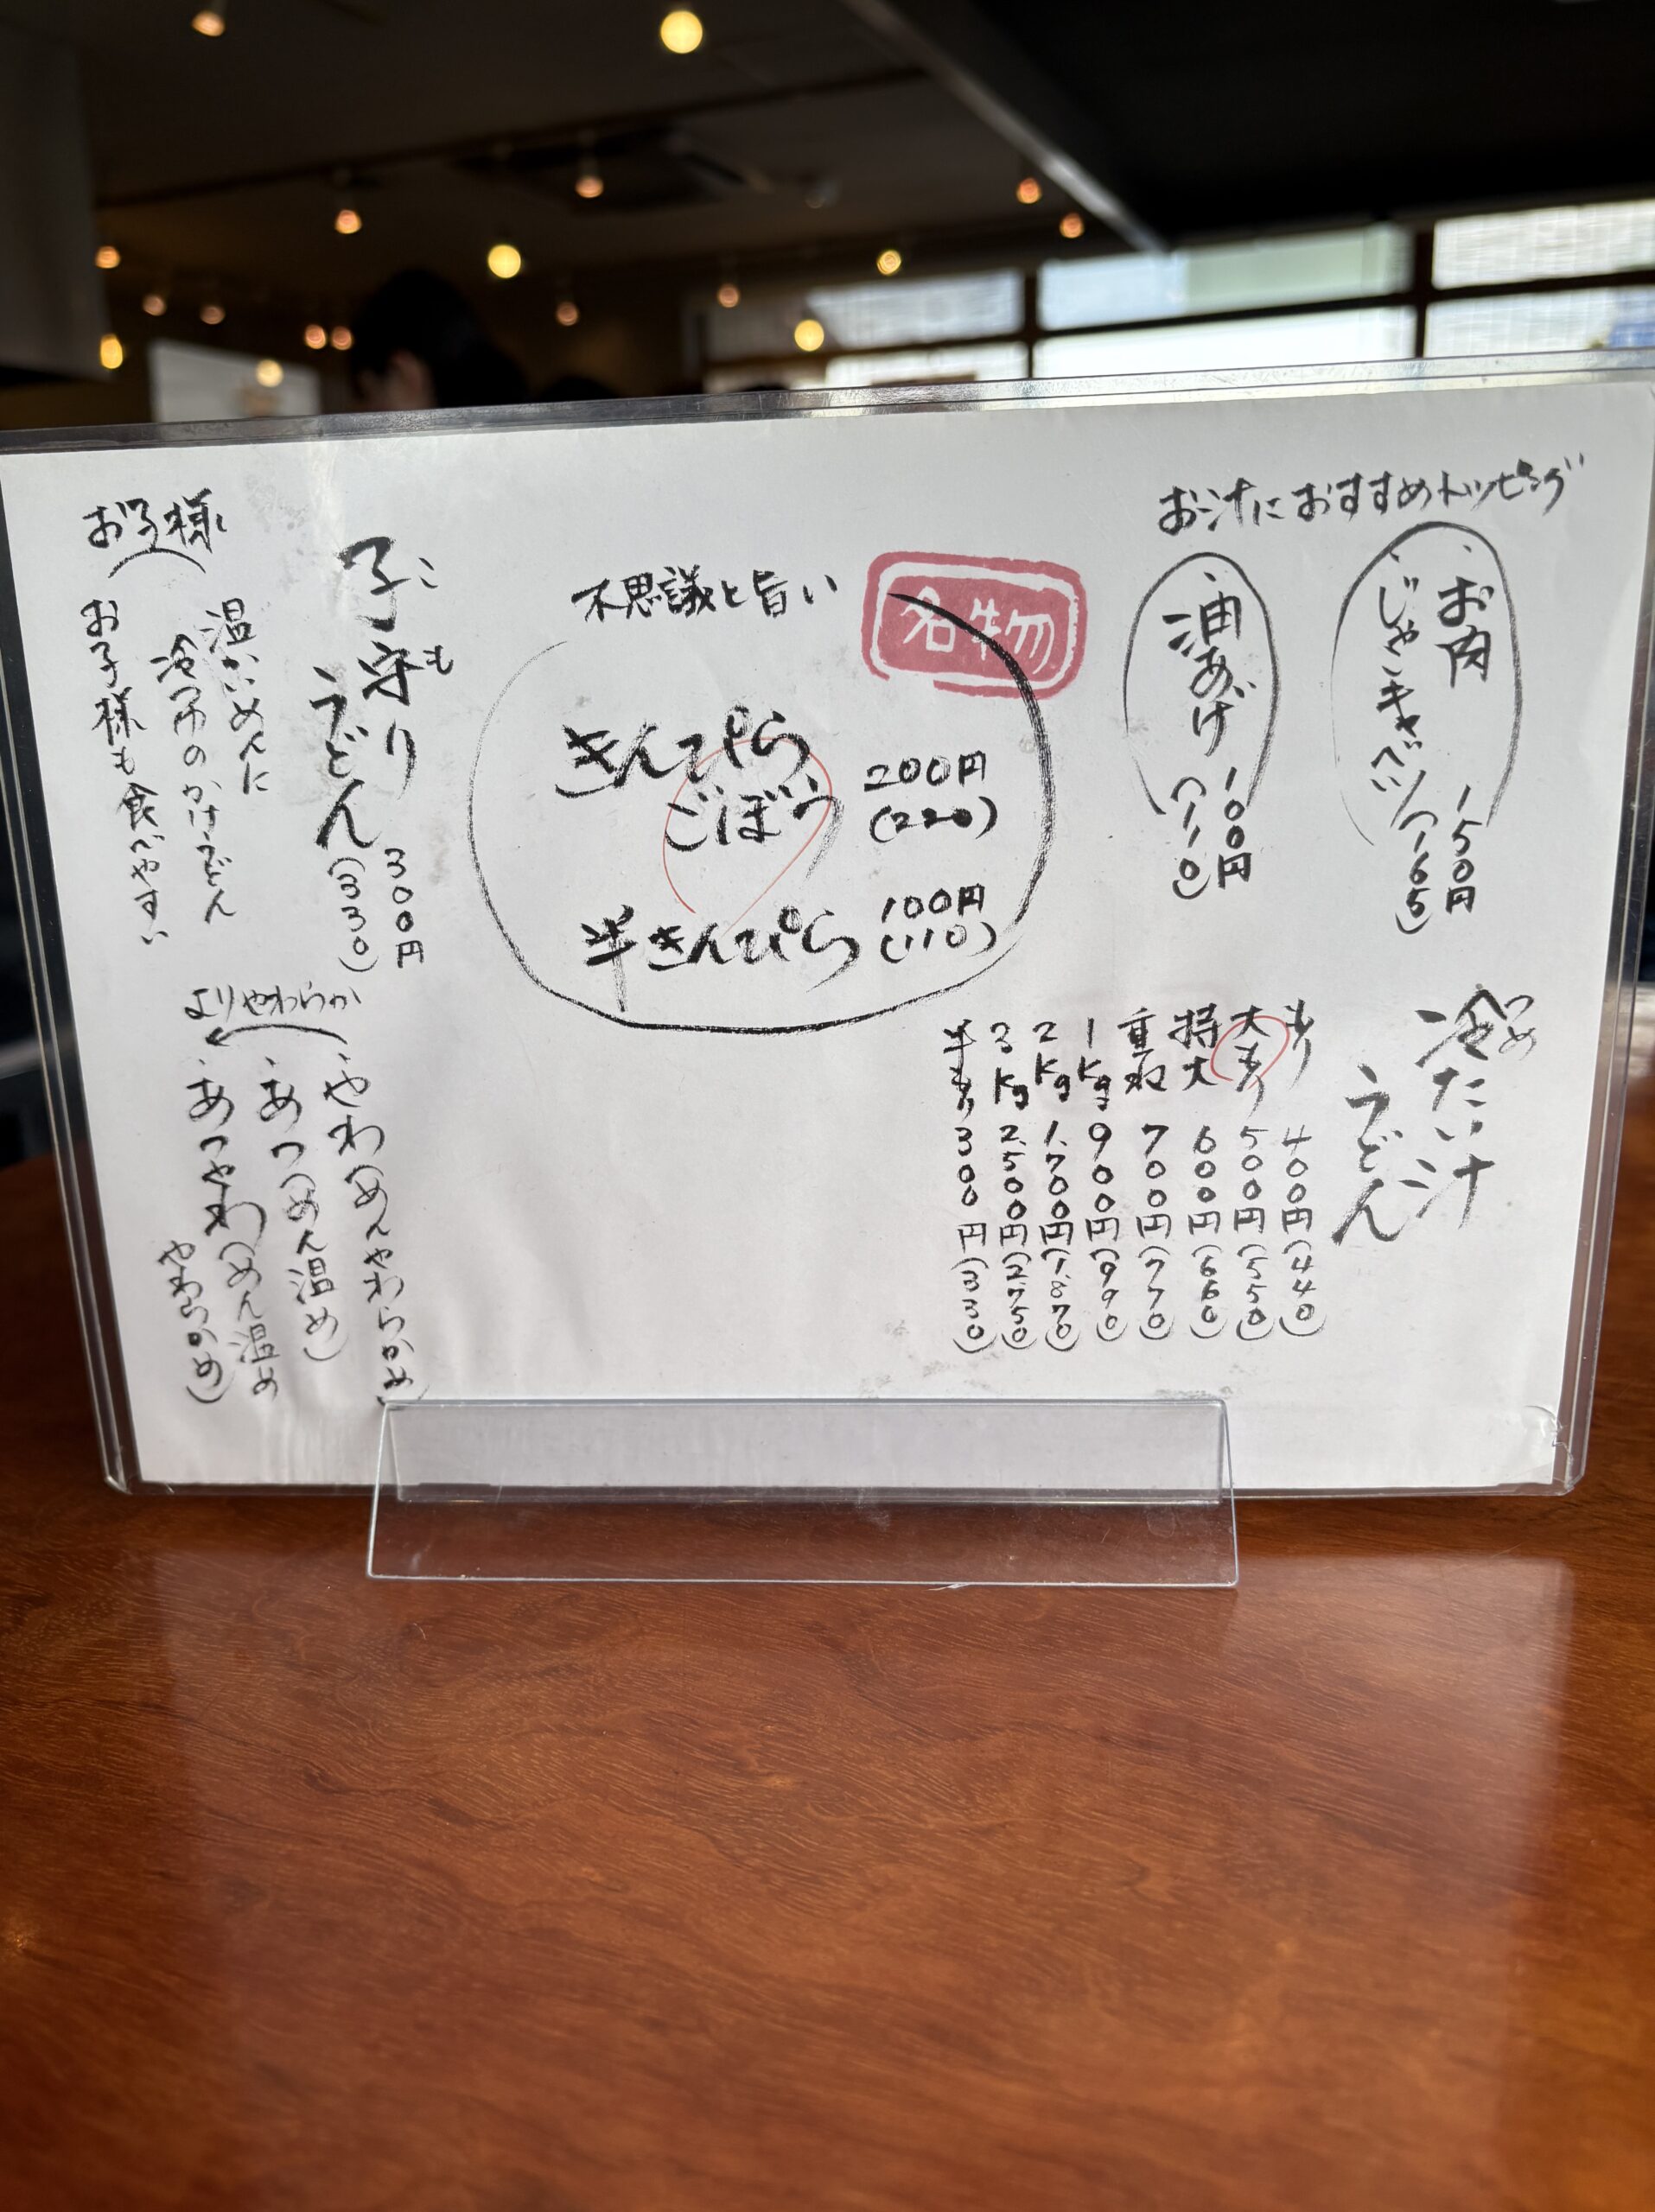 お汁におすすめトッピング
・お肉
・じゃこキャベツ
150円
(165)
・油あげ
100円
(110)
つめ
冷たい汁
うどん
400円(440)
大もり 500円(550)
特大 600円(660)
重ね 700円(770)
1kg 900円(990)
2kg 1,700円(1,870)
3kg 2,500円(2,750)
半もり 300円(330)
名物
不思議と旨い
きんぴら
ごぼう
200円
(220)
半きんぴら
100円
(110)
こも
子守り
うどん
300円
(330)
お子様
温かいめんに
冷汁のかけうどん
お子様も食べやすい
よりやわらか
・やわめん やわらかめ)
・あつめん温め)
・あつやわ めん温め
やわらかめ)